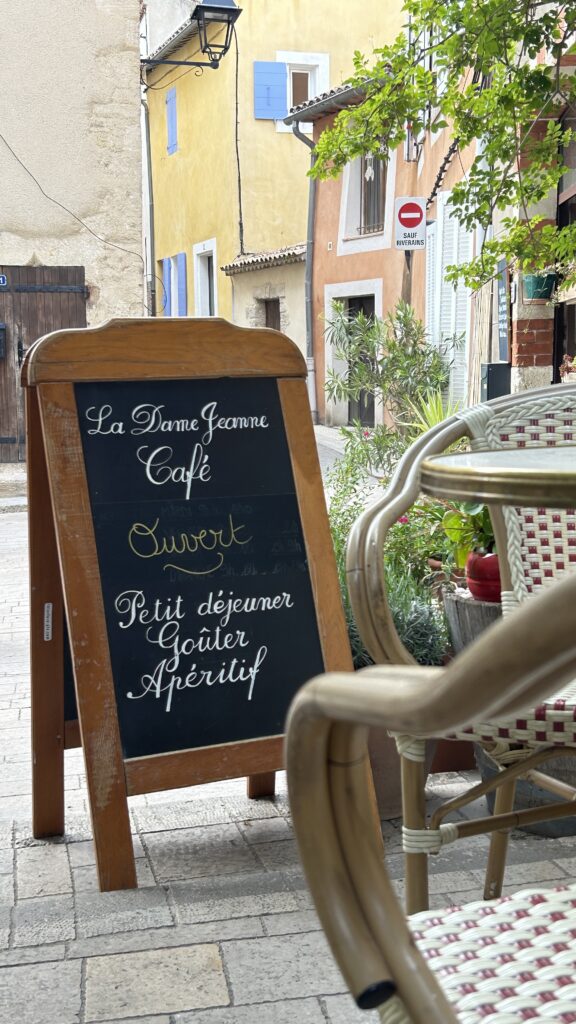 SAUF
RIVERAINS
La Dame Jeanne
Café
Ouvert
Petit déjeuner
Goûter
Apéritif